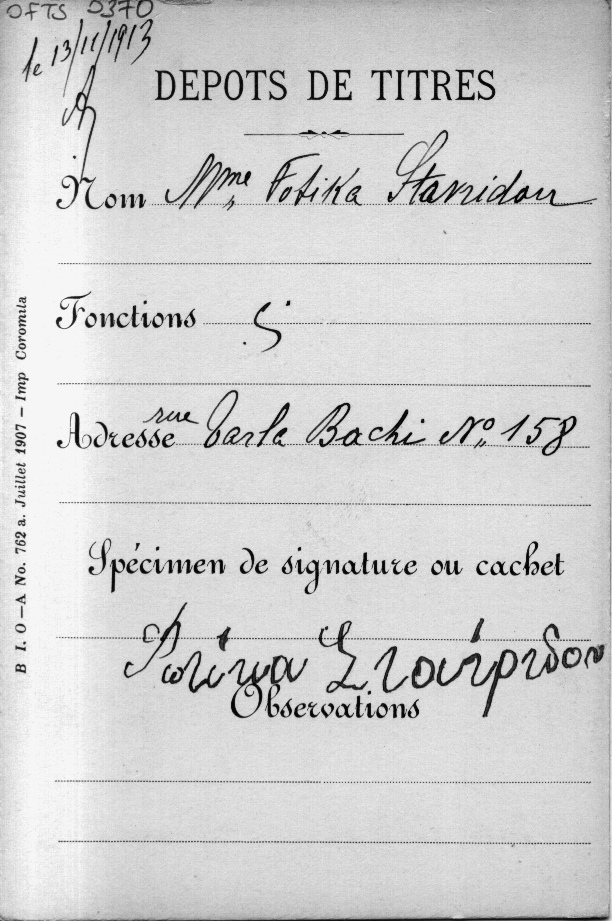 OFTS 0370
le 13/11/1913
DEPOTS DE TITRES
Nom Mme Fotika Stavridou
Fonctions
Adresse rue Tarla Bachi No 158
Spécimen de signature ou cachet
Φωτίκα Σταύριδου
Observations
B I. O – A No. 762 a. Juillet 1907 – Imp Coromila